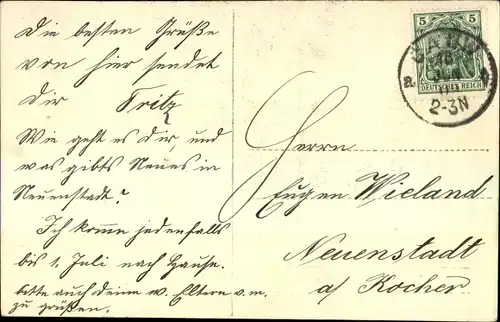 Die besten Grüße
von hier sendet
Dir Fritz
Wie geht es dir, und
was gibts Neues in
Neuenstadt?
Ich komme jedenfalls
bis 1. Juli nach Hause.
bitte auch deine w. Eltern v. m.
zu grüßen.
5 5
DEUTSCHES REICH
2-3N
Herrn
Eugen Wieland
Neuenstadt
a/ Kocher